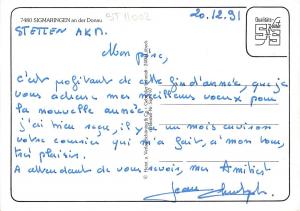 7480 SIGMARINGEN an der Donau
20.12.91
STETTEN AKM.
Mon père,
c'est profitant de cette fin d'année, que je
vous adresse mes meilleurs voeux pour
la nouvelle année.
j'ai bien reçu, il y a un mois environ
votre courrier qui m'a fait, à mon tour,
très plaisir.
A attendant de vous revoir, mes Amitiés